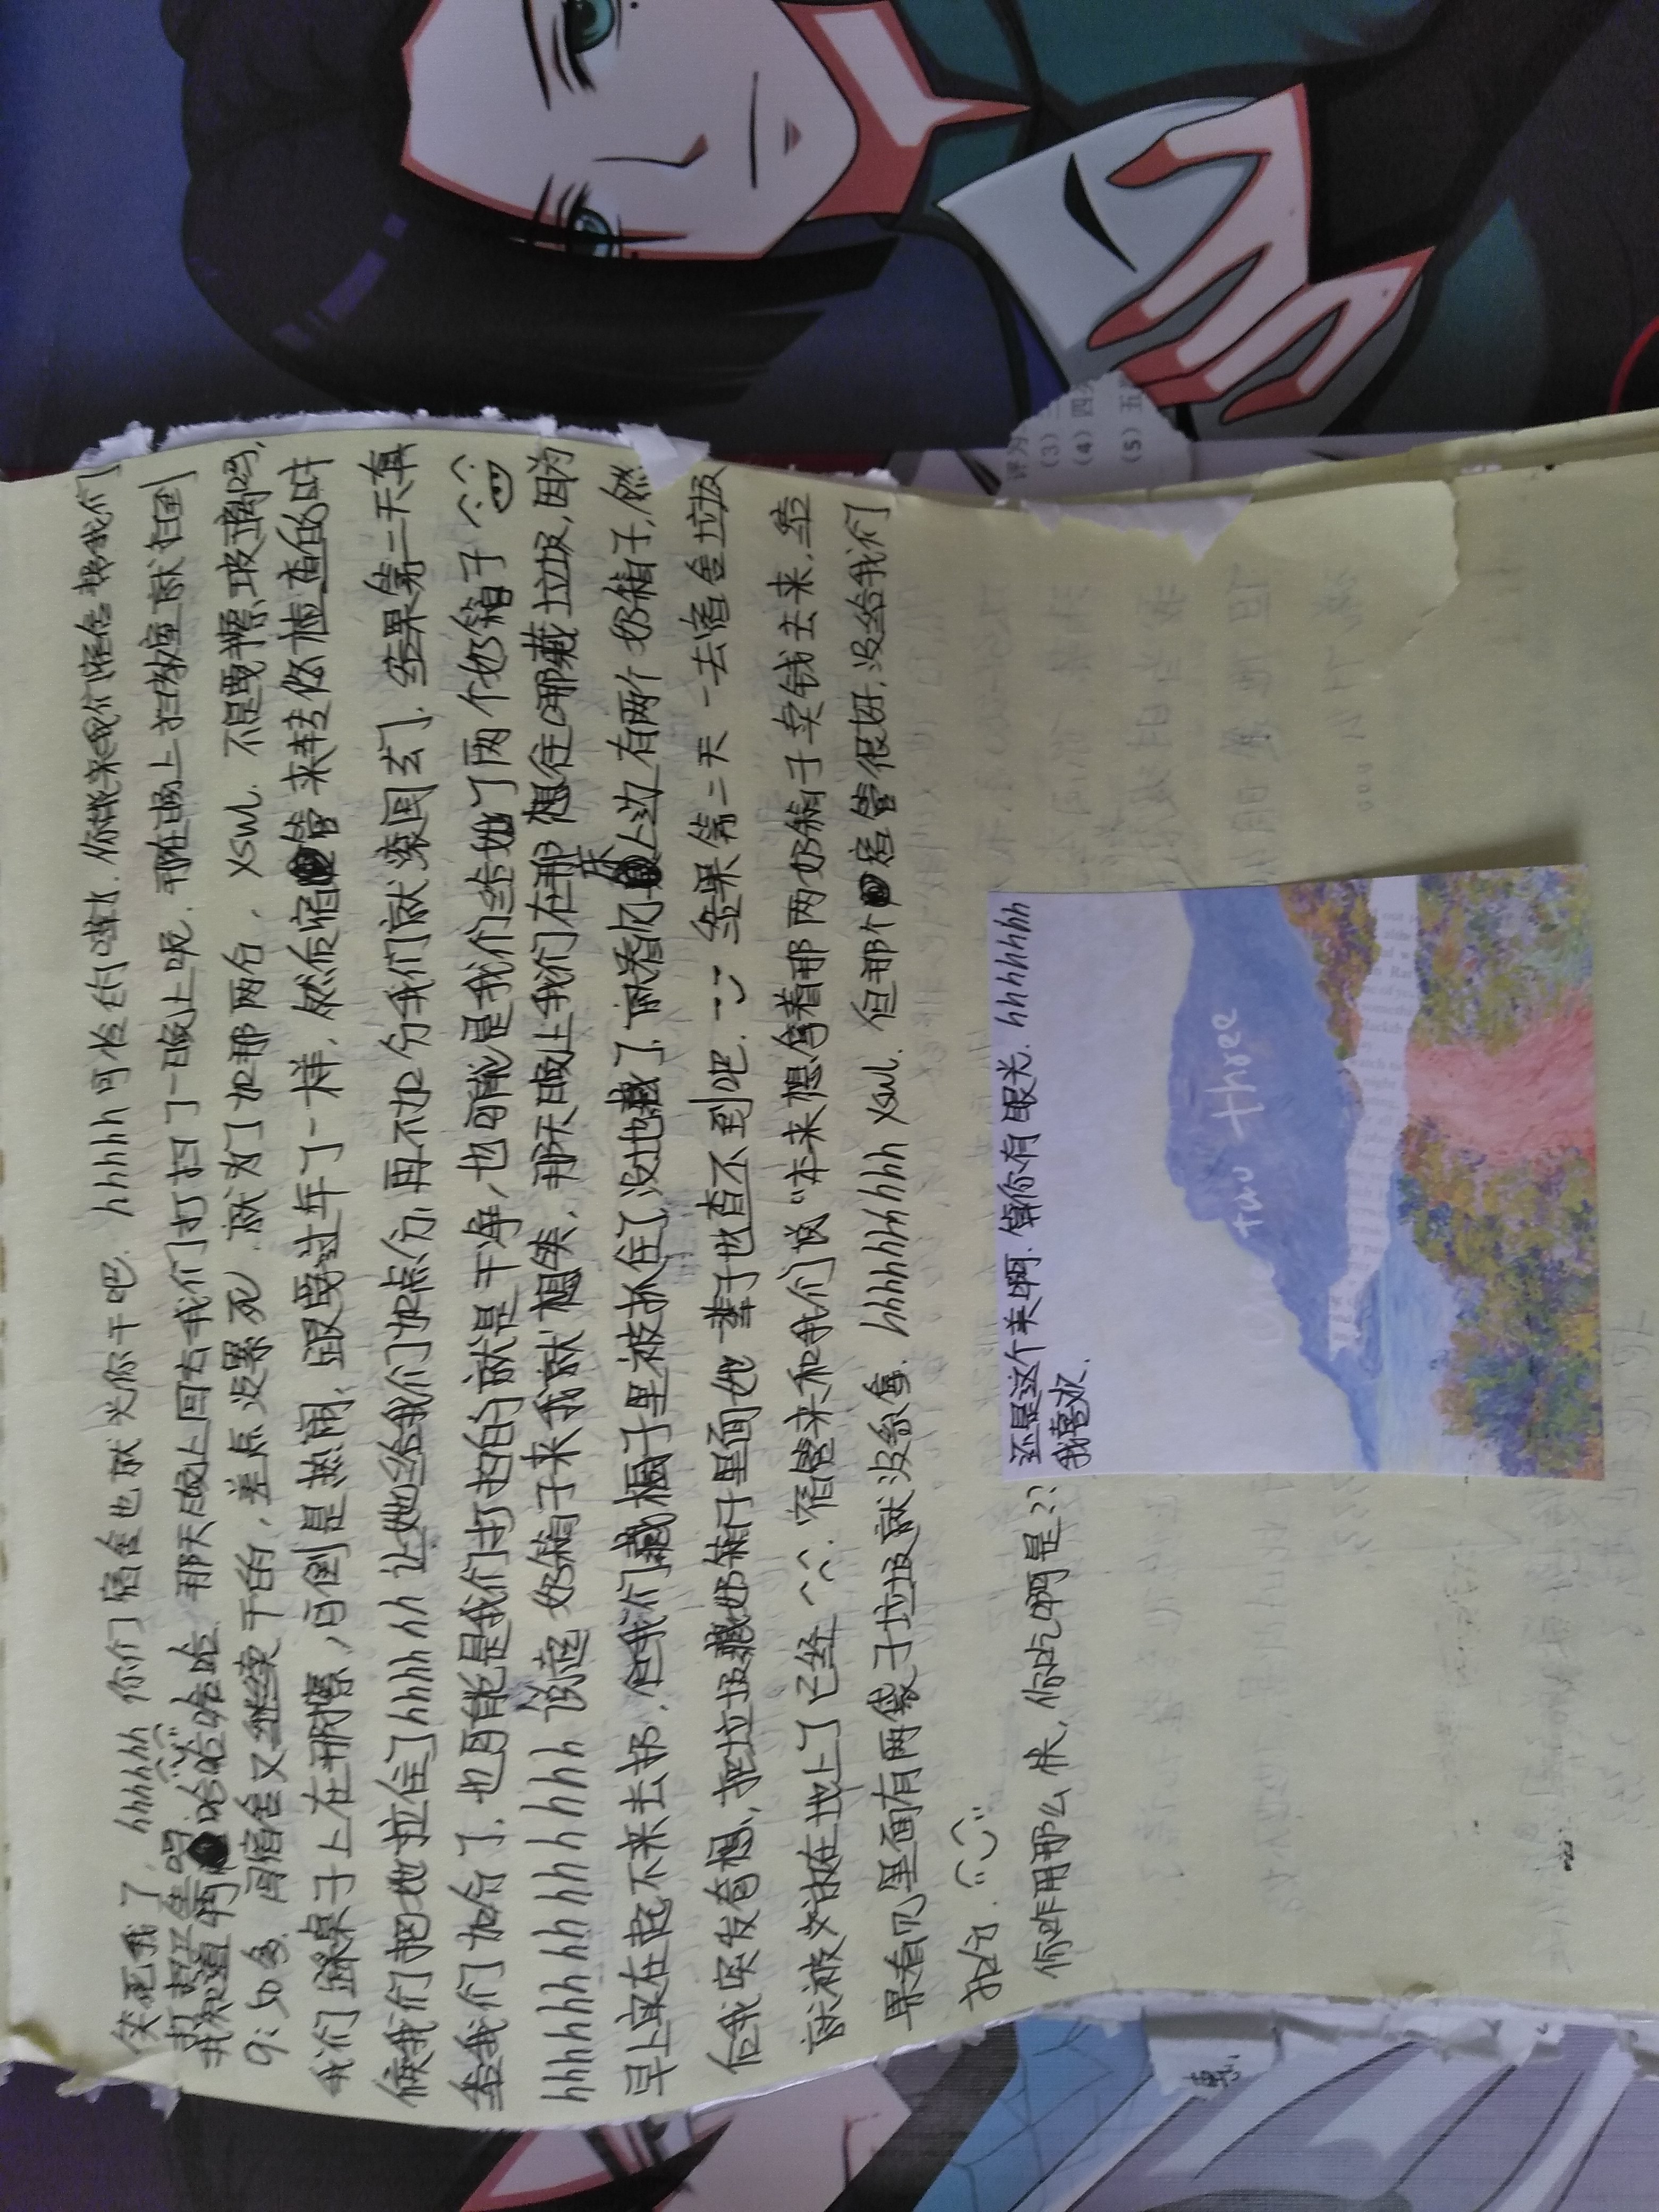 笑死我了，hhhhhh 你们宿舍也就光你干吧．hhhhh可怜的 你能来我们宿舍帮我们
打扫卫生吗
我知道啊哈哈哈哈．那天晚上回去我们打扫了一晚上呢．那在晚上扫教室就扫到
9:50多．回宿舍又继续干的，差点没累死．就为了加那两分，xswl．不是要擦玻璃吗，
我们踩桌子上在那擦，可倒是热闹，跟要过年了一样，然后宿管来转悠检查的时
候我们把她拉住了hhhhhh 让她给我们加点分，再不加分我们就滚回去了．结果第二天真
给我们加分了．也可能是我们打扫的就是干净，也可能是我们给她了两个奶箱子
hhhhhhhhhhhhh 说这奶箱子来我就想笑，那天晚上我们在那想往哪藏垃圾，因为
早上实在起不来去扔．但我们藏橱子里被抓住了，没地藏了．就看见床上边有两个奶箱子，然
后我突发奇想，把垃圾藏奶箱子里面她一辈子也查不到吧．结果第二天一去宿舍垃圾
就被放在地上了已经．宿管来和我们说“本来想拿着那两奶箱子卖钱去来．结
果看见里面有两袋子垃圾就没拿．hhhhhhhhh xswl．但那个宿管很好，没给我们
扣分．
你咋用那么快，你吃啊是??
还是这个美啊．算你有眼光．hhhhhhh
我喜欢．
One two three
评为
(3) 三
(4) 四
(5) 五